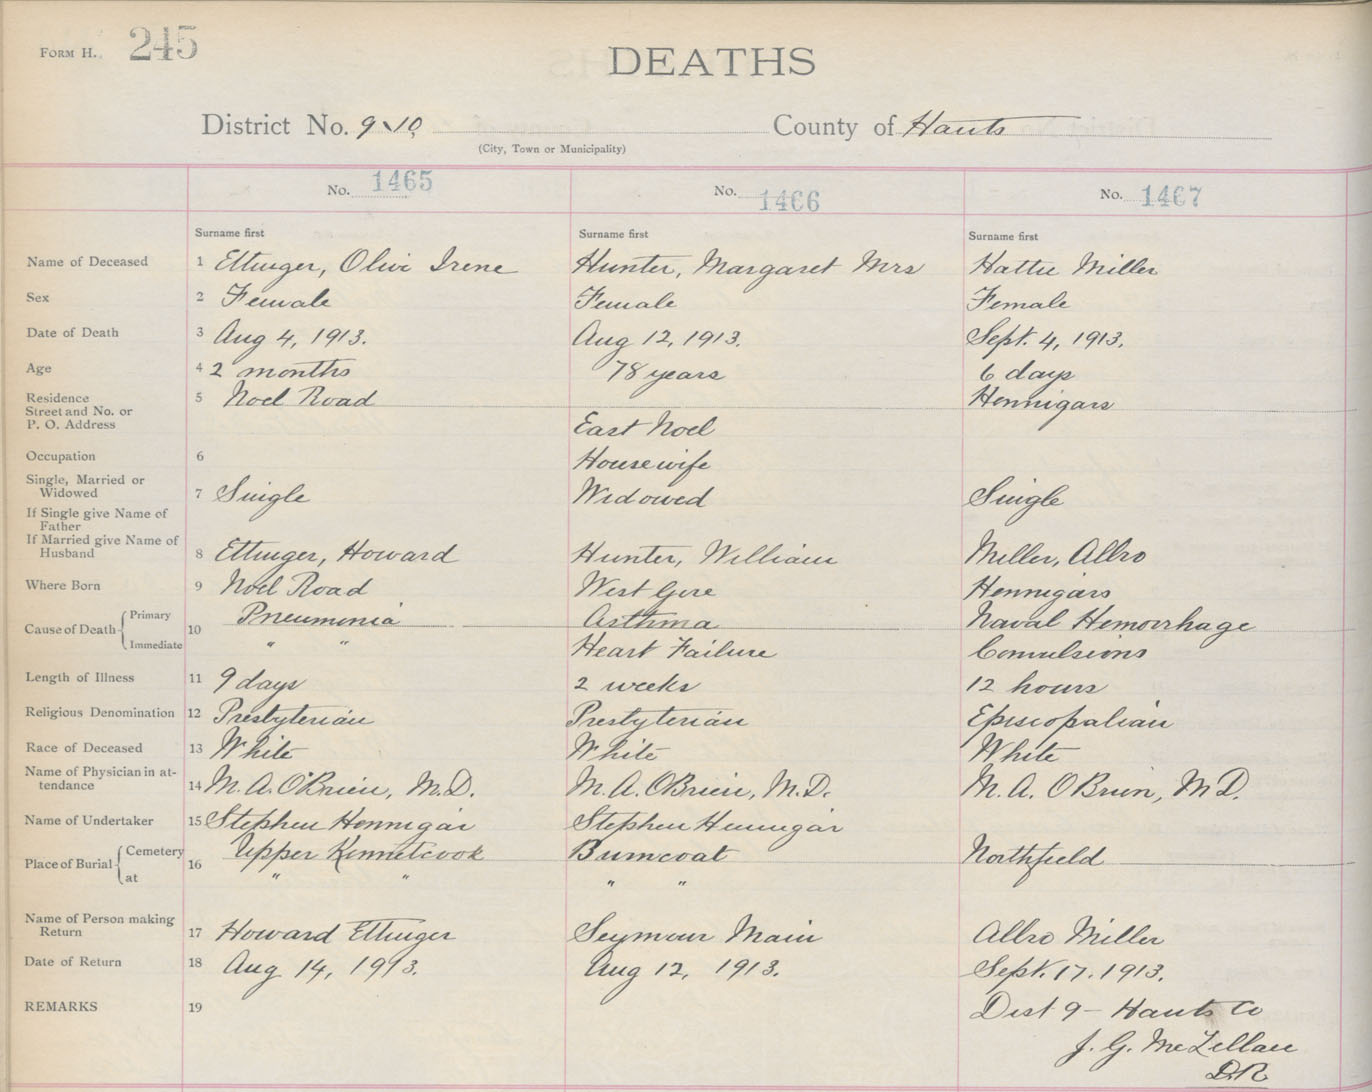 FORM H. 245
DEATHS
District No. 9 & 10 County of Hants
(City, Town or Municipality)
No. 1465 No. 1466 No. 1467
Surname first Surname first Surname first
Name of Deceased 1 Ettinger, Olive Irene Hunter, Margaret Mrs Hattie Miller
Sex 2 Female Female Female
Date of Death 3 Aug 4, 1913. Aug 12, 1913. Sept. 4, 1913.
Age 4 2 months 78 years 6 days
Residence 5 Noel Road Hennigars
Street and No. or
P. O. Address East Noel
Occupation 6 Housewife
Single, Married or
Widowed 7 Single Widowed Single
If Single give Name of
Father
If Married give Name of
Husband 8 Ettinger, Howard Hunter, William Miller, Albro
Where Born 9 Noel Road West Gore Hennigars
Cause of Death Primary 10 Pneumonia Asthma Naval Hemorrhage
Immediate " " Heart Failure Convulsions
Length of Illness 11 9 days 2 weeks 12 hours
Religious Denomination 12 Presbyterian Presbyterian Episcopalian
Race of Deceased 13 White White White
Name of Physician in at-
tendance 14 M. A. O'Brien, M.D. M. A. O'Brien, M.D. M. A. O'Brien, M.D.
Name of Undertaker 15 Stephen Hennigar Stephen Hennigar
Place of Burial Cemetery 16 Upper Kennetcook Burncoat Northfield
at " " " "
Name of Person making
Return 17 Howard Ettinger Seymour Main Albro Miller
Date of Return 18 Aug 14, 1913. Aug 12, 1913. Sept. 17. 1913.
REMARKS 19 Dist 9 - Hants Co
J. G. McLellan
D.R.